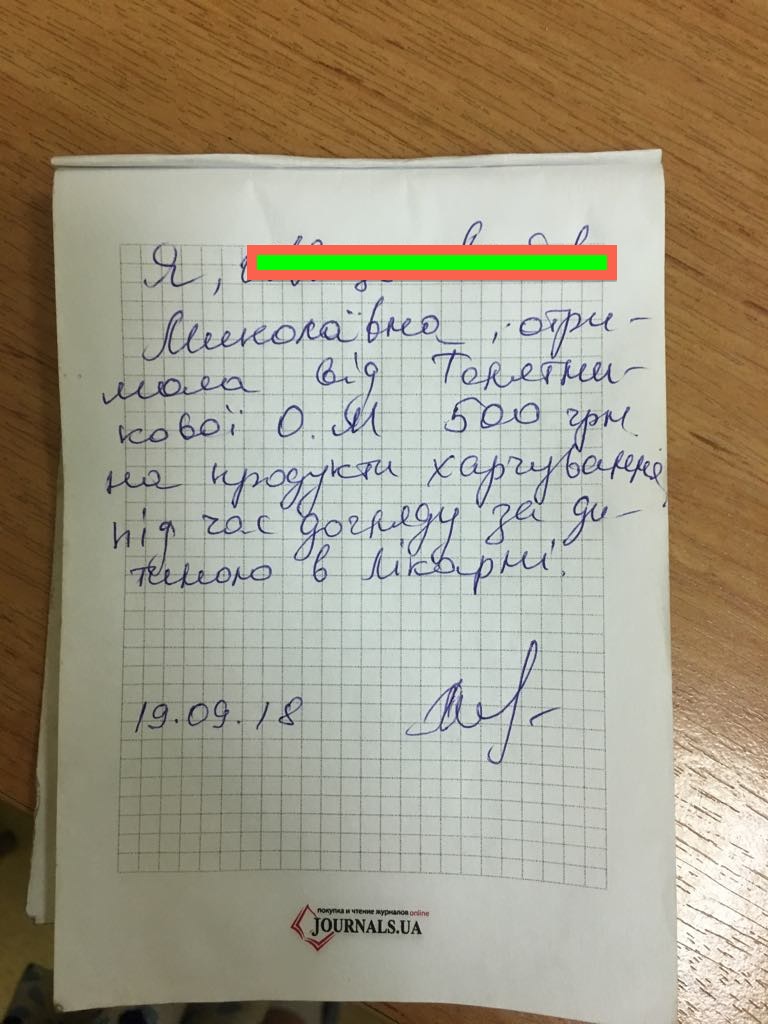 Я,
Миколаївна, отри-
мала від Телятни-
кової О.М 500 грн
на продукти харчування
під час догляду за ди-
тиною в лікарні.
19.09.18
покупка и чтение журналов online
JOURNALS.UA